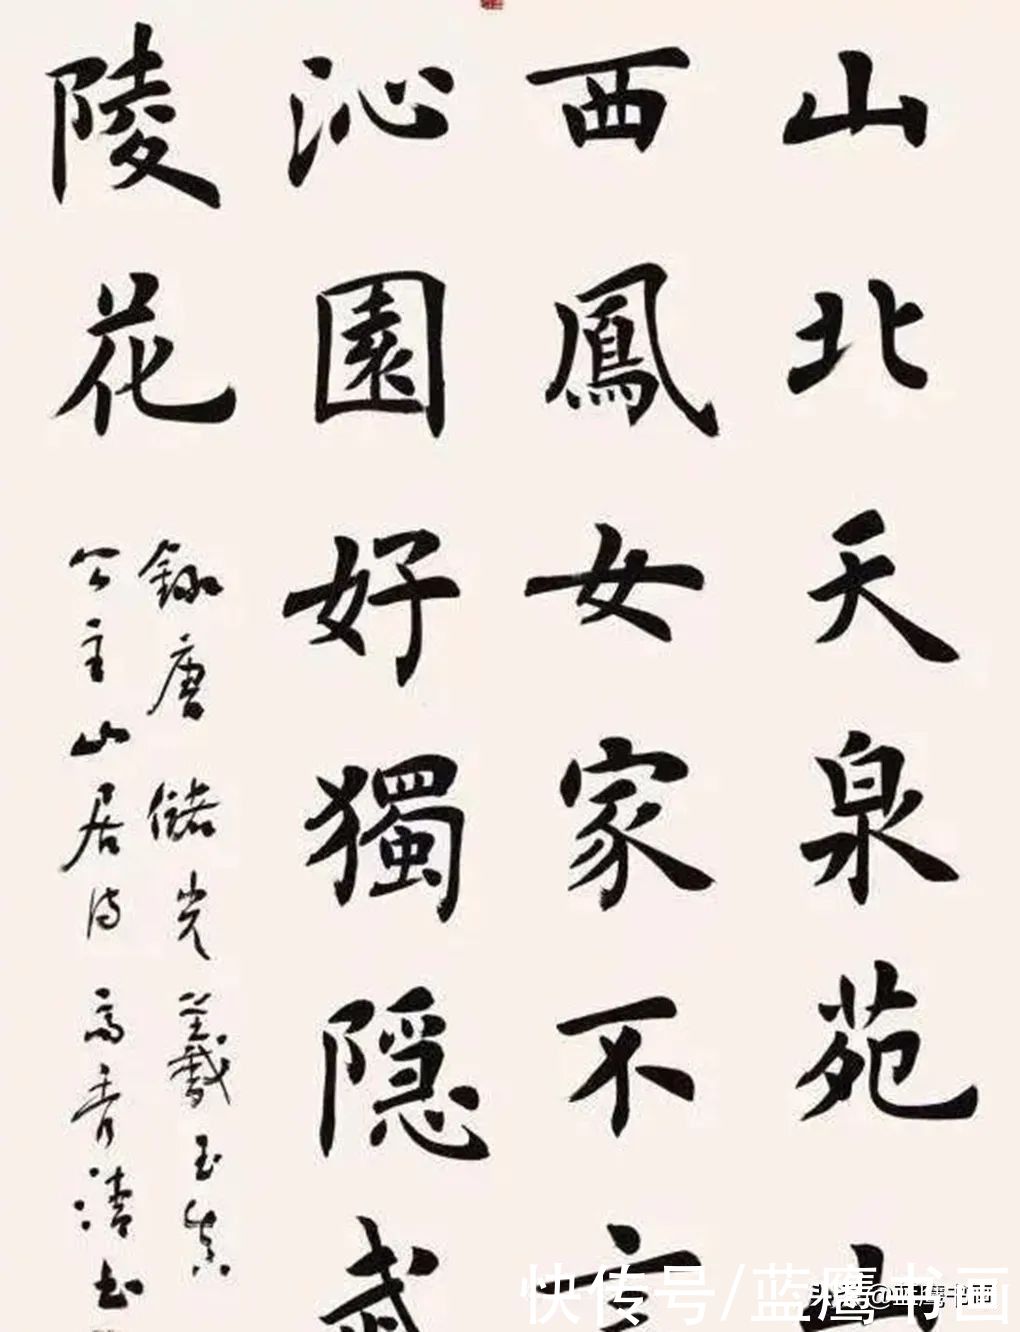 山北天泉苑山
西鳳女家不言
沁園好獨隱武
陵花
錄唐儲光羲玉真
公主山居詩高秀清书
快传号/蓝鹰书画
头条@蓝鹰书画